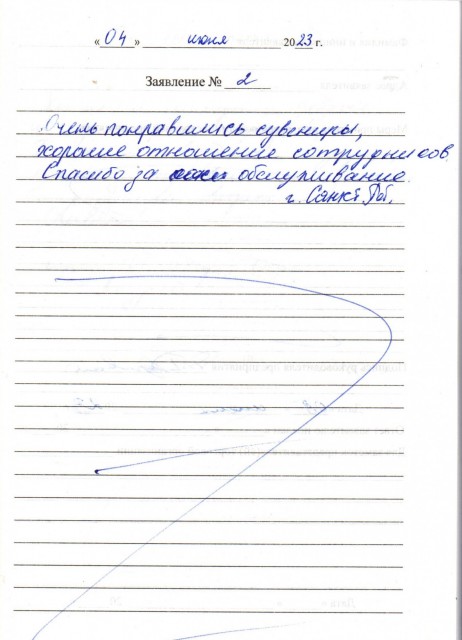 «04» июня 2023 г.
Заявление № 2
Очень понравились сувениры,
хорошее отношение сотрудников
Спасибо за обслуживание.
г. Санкт. Пб.